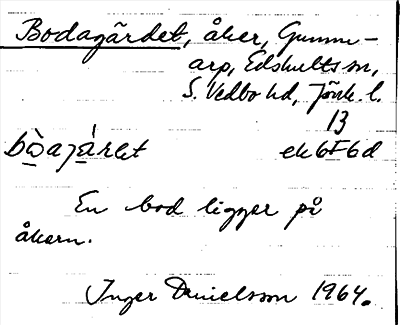 Bodagärdet, åker, Gumm-
arp, Edshults sn,
S. Vedbo hd, Jönk. l.
13
bòdajárdet ek 6F6d
En bod ligger på
åkern.
Inger Danielsson 1964.